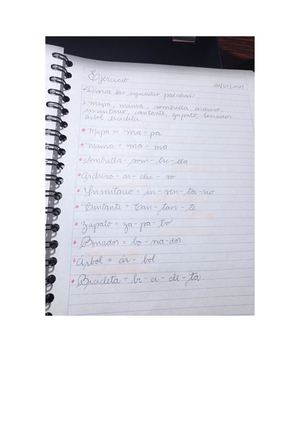 Ejercicio
Divida las siguientes palabras
Mapa, mama, sombrilla, archivo,
inventario, cantante, zapato, borrador,
arbol, bicicleta.
Mapa = ma - pa
Mama = ma - ma
Sombrilla - som - bri - lla
Archivo = ar - chi - vo
Inventario = in - ven - ta - rio
Cantante = can - tan - te
Zapato = za - pa - to
Borrador = bo - rra - dor
Arbol = ar - bol
Bicicleta = bi - ci - cle - ta